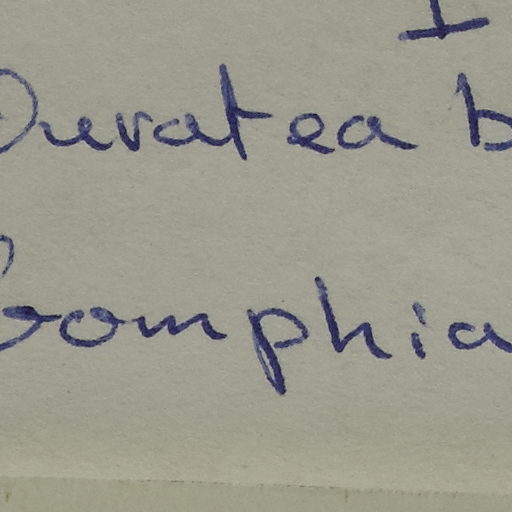 I
Ouratea b
Gomphia